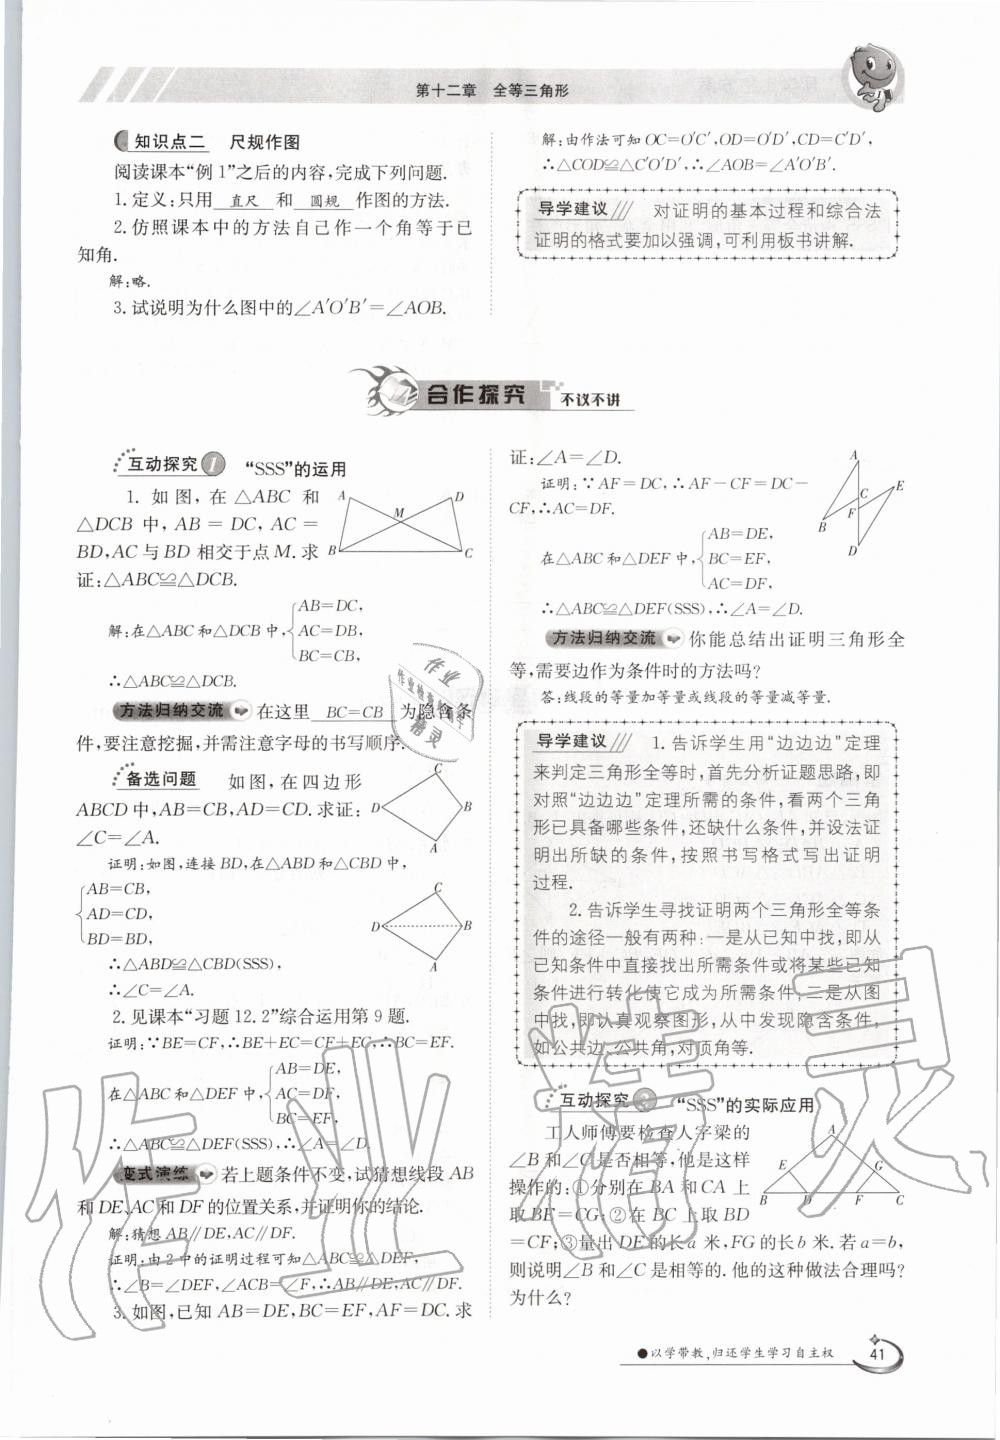 第十二章 全等三角形
知识点二 尺规作图
阅读课本“例1”之后的内容,完成下列问题.
1.定义:只用 直尺 和 圆规 作图的方法.
2.仿照课本中的方法自己作一个角等于已
知角.
解:略.
3.试说明为什么图中的∠A′O′B′=∠AOB.
解:由作法可知OC=O′C′,OD=O′D′,CD=C′D′,
∴△COD≌△C′O′D′,∴∠AOB=∠A′O′B′.
导学建议 对证明的基本过程和综合法
证明的格式要加以强调,可利用板书讲解.
合作探究 不议不讲
互动探究 1 “SSS”的运用
1. 如图,在△ABC 和
△DCB 中,AB = DC,AC =
BD,AC与BD 相交于点M. 求
证:△ABC≌△DCB.
A
D
M
B
C
AB=DC,
解:在△ABC和△DCB中, AC=DB,
BC=CB,
∴△ABC≌△DCB.
方法归纳交流 在这里 BC=CB 为隐含条
件,要注意挖掘,并需注意字母的书写顺序.
备选问题 如图,在四边形
ABCD中,AB=CB,AD=CD.求证:
∠C=∠A.
C
D
B
A
证明:如图,连接BD,在△ABD和△CBD中,
AB=CB,
AD=CD,
BD=BD,
C
D
B
A
∴△ABD≌△CBD(SSS),
∴∠C=∠A.
2.见课本“习题12.2”综合运用第9题.
证明:∵BE=CF,∴BE+EC=CF+EC,∴BC=EF.
AB=DE,
在△ABC和△DEF中, AC=DF,
BC=EF,
∴△ABC≌△DEF(SSS),∴∠A=∠D.
变式演练 若上题条件不变,试猜想线段AB
和DE、AC和DF的位置关系,并证明你的结论.
解:猜想AB∥DE,AC∥DF.
证明:由2中的证明过程可知△ABC≌△DEF,
∴∠B=∠DEF,∠ACB=∠F,∴AB∥DE,AC∥DF.
3.如图,已知AB=DE,BC=EF,AF=DC.求
证:∠A=∠D.
证明:∵AF=DC,∴AF-CF=DC-
CF,∴AC=DF.
A
E
C
F
B
D
AB=DE,
在△ABC和△DEF中, BC=EF,
AC=DF,
∴△ABC≌△DEF(SSS),∴∠A=∠D.
方法归纳交流 你能总结出证明三角形全
等,需要边作为条件时的方法吗?
答:线段的等量加等量或线段的等量减等量.
导学建议 1.告诉学生用“边边边”定理
来判定三角形全等时,首先分析证题思路,即
对照“边边边”定理所需的条件,看两个三角
形已具备哪些条件,还缺什么条件,并设法证
明出所缺的条件,按照书写格式写出证明
过程.
2.告诉学生寻找证明两个三角形全等条
件的途径一般有两种:一是从已知中找,即从
已知条件中直接找出所需条件或将某些已知
条件进行转化使它成为所需条件,二是从图
中找,即认真观察图形,从中发现隐含条件,
如公共边、公共角,对顶角等.
互动探究 2 “SSS”的实际应用
工人师傅要检查人字梁的
∠B和∠C是否相等,他是这样
操作的:①分别在 BA 和 CA 上
取BE=CG;②在 BC 上取 BD
=CF;③量出DE的长a米,FG的长b米.若a=b,
则说明∠B和∠C是相等的.他的这种做法合理吗?
为什么?
A
E
G
B
D
F
C
●以学带教,归还学生学习自主权
41
作业
作业检查小助手
精灵
作业精灵